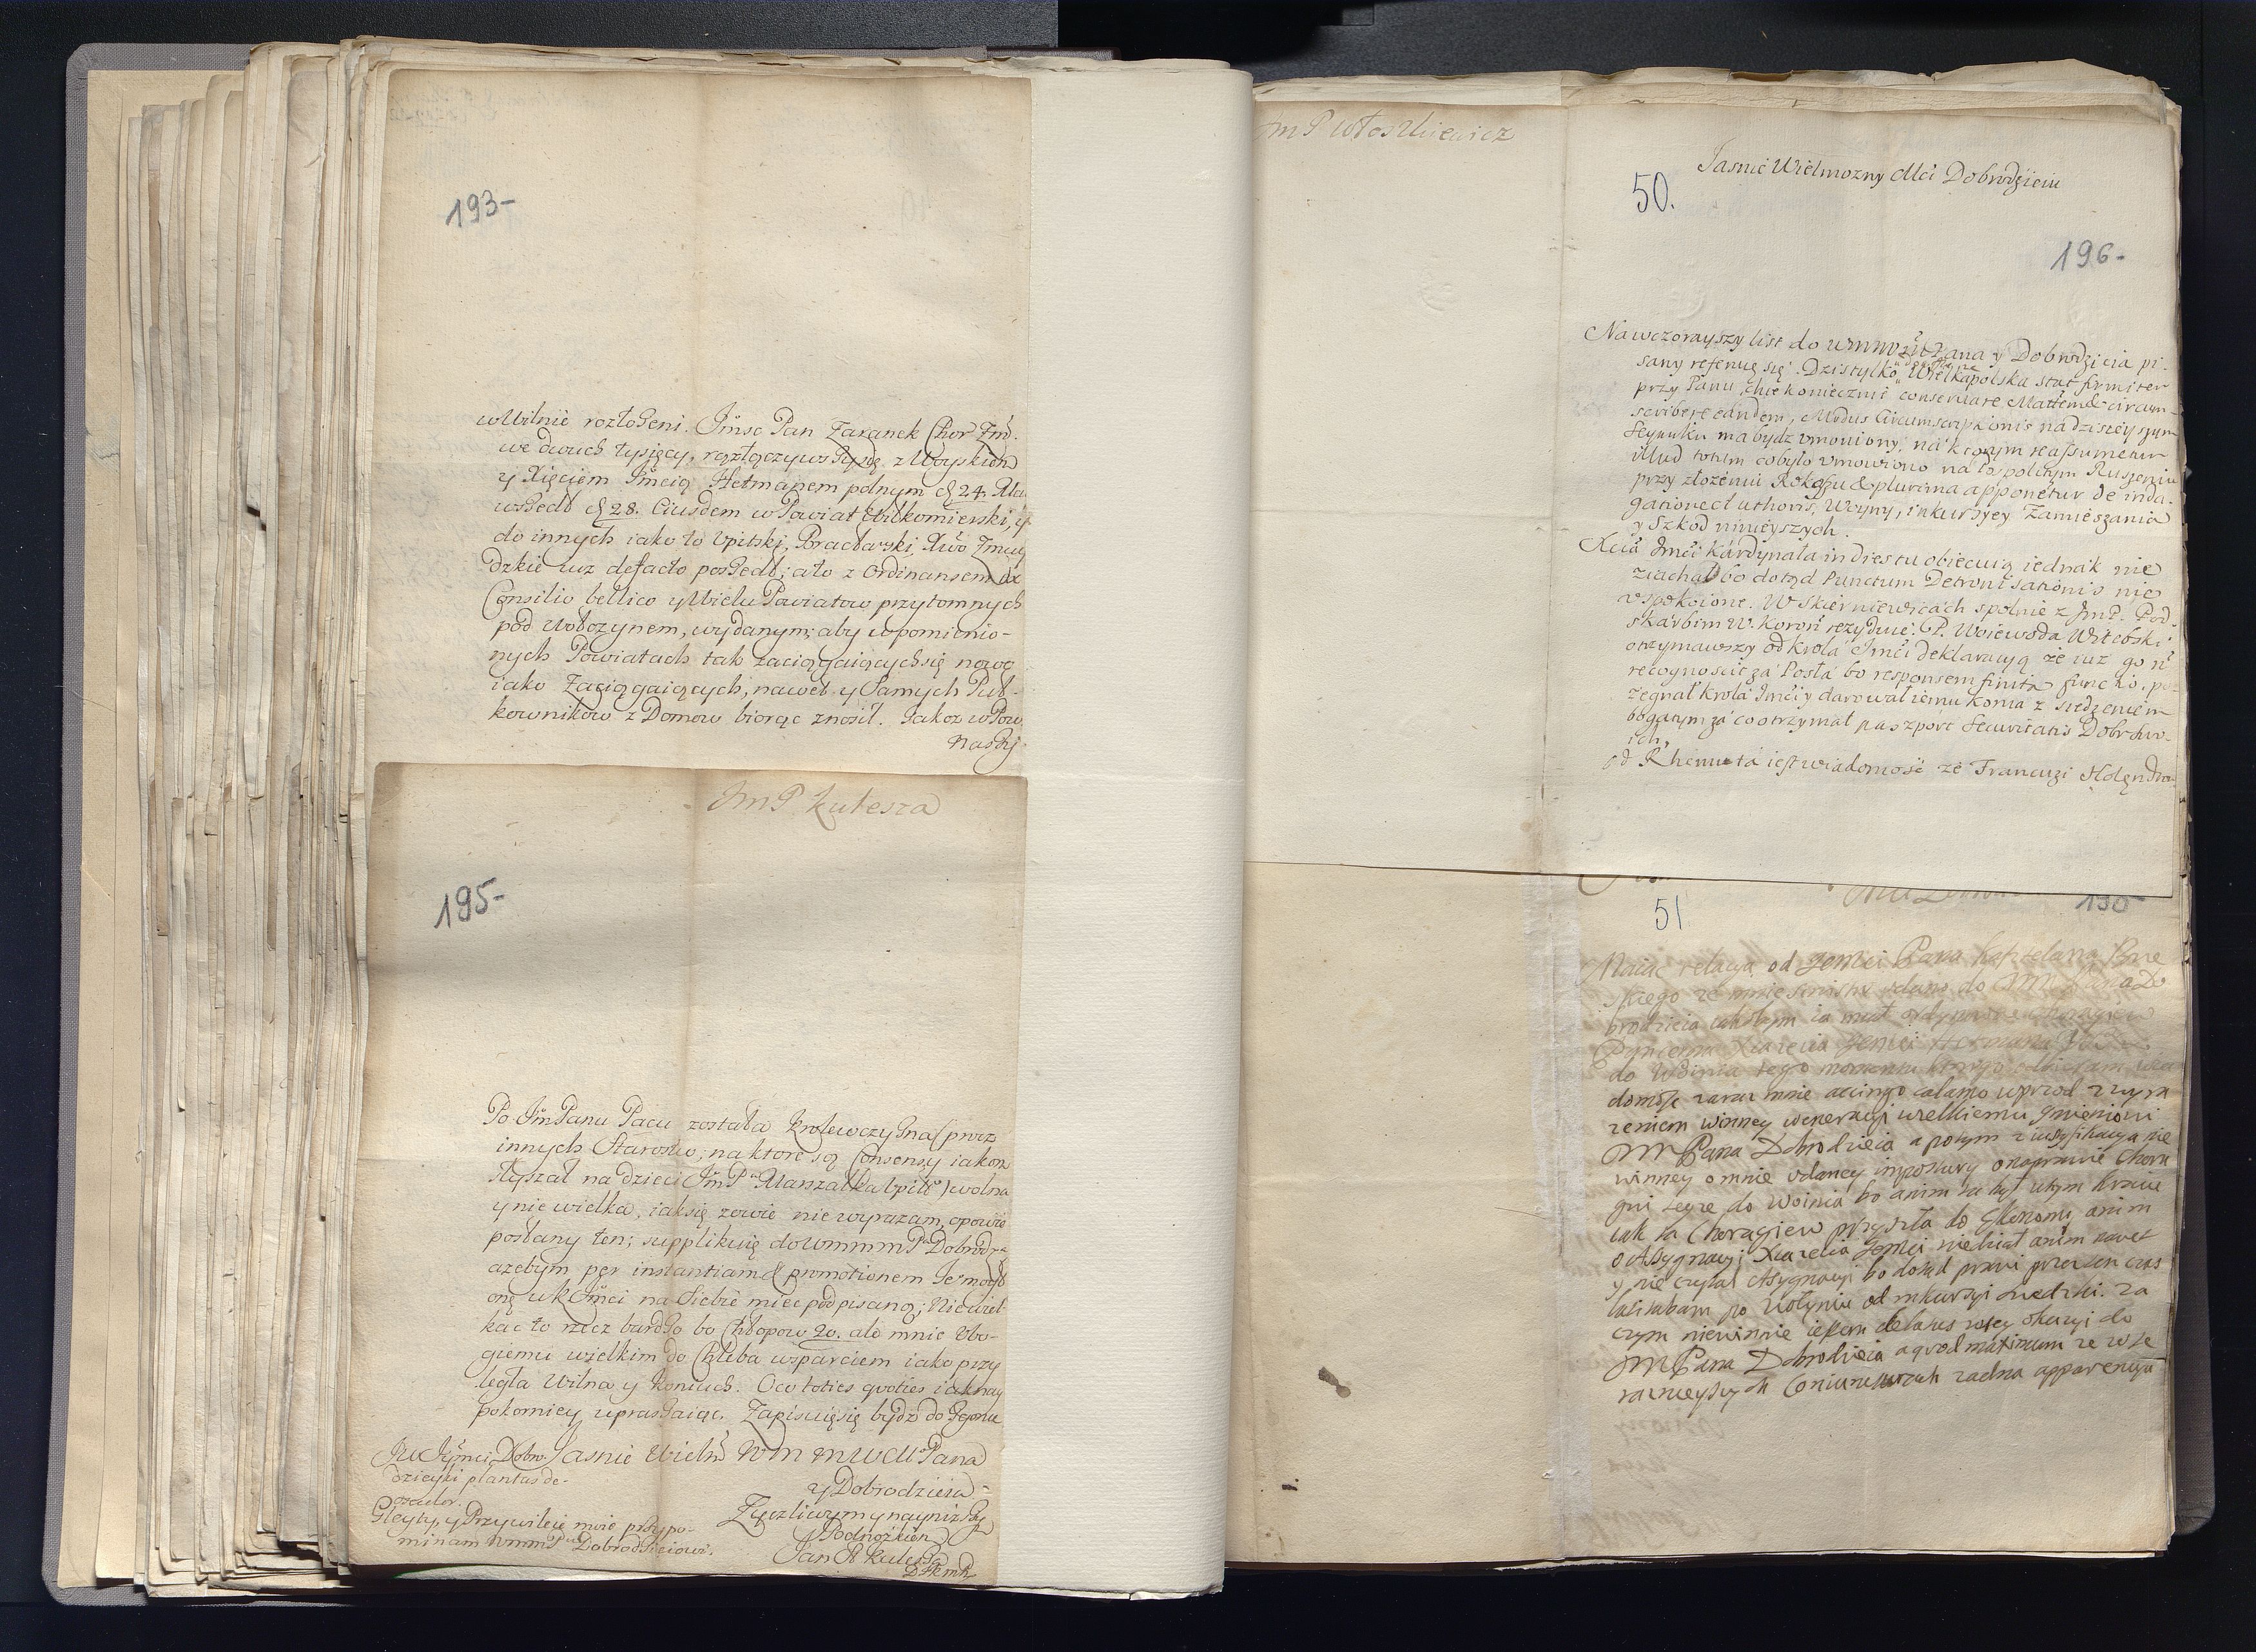 193-
w Wilnie rozłożeni. Jmsc Pan Zaranek Chor Żm.
we dwuch tysięcy, rozłączywszysię z Woyskiem
y Xięciem Jmcią Hetmanem polnym d 24. Ma
wszedł d 28. Eiusdem w Powiat Wilkomierski, y
do innych iako to Upitski, Bracławski Xwo Żmuy
dzkie iuz defacto poszedł; a to z Ordinansem ex
Consilio bellico y Wielu Powiatow przytomnych
pod Wobczynem, wydanym; aby wpomienio-
nych Powiatach tak zaciągaiącychsię nowo
iako Zaciągaiących, nawet y Samych Puł-
kownikow z Domow biorąc znosił. Jakoz w Pow.
naszy
JmP Kulesza
195-
Po JmPanu Pacu została Krolewczyzna (przz
innych Starostw, na ktore są Consensy iakom
słyszał na dzieci JmPa Marszałka Upitt) wolna
y nie wielka, iak się zowie nie wyrazam, opowie
posłany ten; supplikuię do WmmmPa Dobrodza
azebym per instantiam & promotionem Je mogł
onę u K Jmci na Siebie miec podpisaną; Nie wiel-
kac to rzecz bardzo bo Chłopow 20. ale mnie Ubo-
giemu wielkim do Chleba wsparciem iako przy
legła Wilna y Koniuch. Oco toties quoties iaknay
pokorniey upraszaiąc. Zapisuięsię bydz do Zgonu
Jasnie Wielm Wm mWM Pana
y Dobrodzieia
Zyczliwym y naynizszy
Podnożkiem
Jan St Kulesza
JW Jeymci Dobro-
dzieyki plantas de-
osculor.
Gleyty, y Przywileie moie przypo-
minam WmmPu Dobrodzieiowi.
JmP Włoszkiewicz
50.
Jasnie Wielmozny Mci Dobrodzieiu
196-
Na wczorayszy list do Wmm Pana y Dobrodzieia pi-
sany referuię się. Dzis tylko Wielkapolska stać firmiter
przy Panu, chce koniecznie conservare Mattem & circum-
scribere eandem, Modus Circumscriptionis na dzisieyszym
Seymiku ma bydz umowiony, na ktorym reassumetur
illud totum cobyło umowiono na Pospolitym Ruszeniu
przy złozeniu Rokoszu & plurima apponetur de inda-
gatione Authoris, Woyny, inkursyey Zamieszania
y Szkod ninieyszych.
Xcia Jmci Kardynała in dies tu obiecuią iednak nie
ziachał bo dotąd Punctum Detronisationis nie
uspokoione. W Skierniewicach spolnie z JmP. Pod-
skarbim W. Koron rezyduie. P. Woiewoda Witebski
otrzymawszy od Krola Jmci deklaracyą że iuz go n
recognoscit za Posła bo responsem finita functio, po-
żegnał Krola Jmci y darował iemu konia z siedzeniem
bogatym za co otrzymał paszport Securitatis Dobr swo-
ich,
od Rhenu ta iest wiadomość ze Francuzi Holendrow
51
Maiąc relacyą od Jemci Pana Kasztelana
do Woinia tego momentu
domosc zaraz mnie accingo calamo wprzod z wyra
zeniem winney weneracyi wielkiemu Imieniowi
MPana Dobrodzieia a potym z iustyfikacyą nie
winney o mnie udaney impostury onaprawie Chora
gwi tegze do Woinia bo anim ia był wtym kraiu
iak ta Choragiew przyszła do Ekonomij anim
o Assygnacyi Xiązęcia Jemci wiedział anim nawet
y nie czytał Assygnacyi bo dotąd prawie przez ten czas
po Wołyniu od inkursyi szwedzki. za
czym niewinnie iestem delatus
MPana Dobrodzieia a quod maximum ze w te
raznieyszych Coniuncturach zadna apparencya